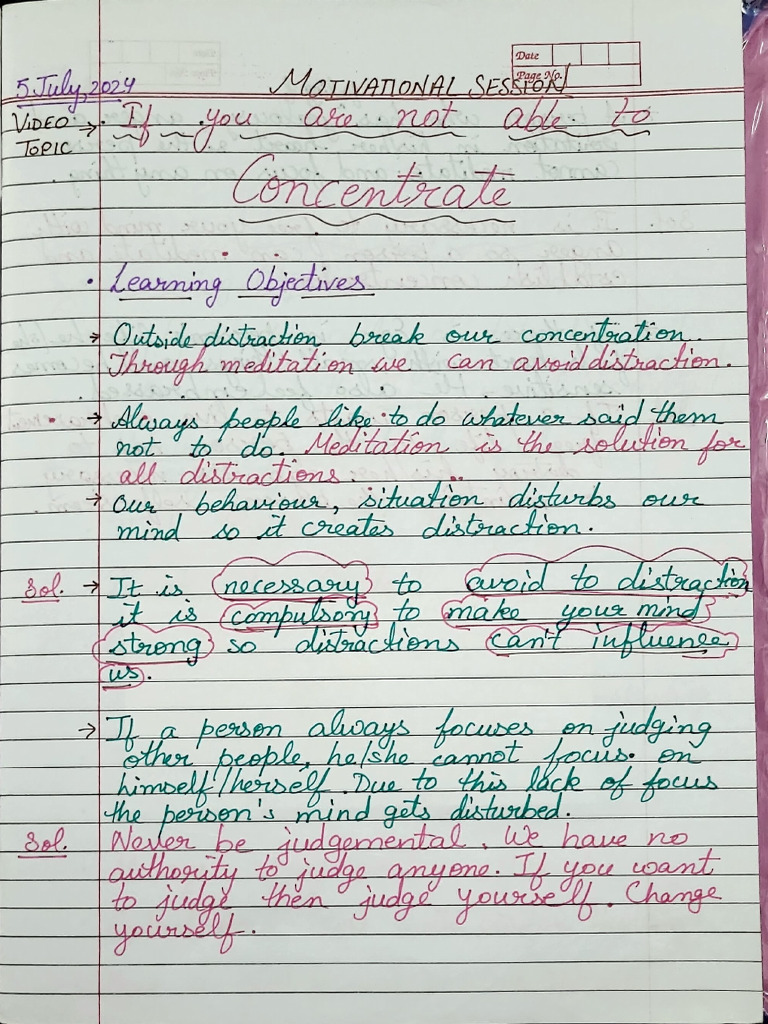 Date
Page No.
5 July, 2024 MOTIVATIONAL SESSION
VIDEO → If you are not able to
TOPIC
Concentrate
• Learning Objectives
→ Outside distraction break our concentration.
Through meditation we can avoid distraction.
→ Always people like to do whatever said them
not to do. Meditation is the solution for
all distractions.
→ Our behaviour, situation disturbs our
mind so it creates distraction.
Sol. → It is necessary to avoid to distraction
it is compulsory to make your mind
strong so distractions can't influence
us.
→ If a person always focuses on judging
other people, he/she cannot focus on
himself/herself. Due to this lack of focus
the person's mind gets disturbed.
Sol. Never be judgemental. We have no
authority to judge anyone. If you want
to judge then judge yourself. Change
yourself.